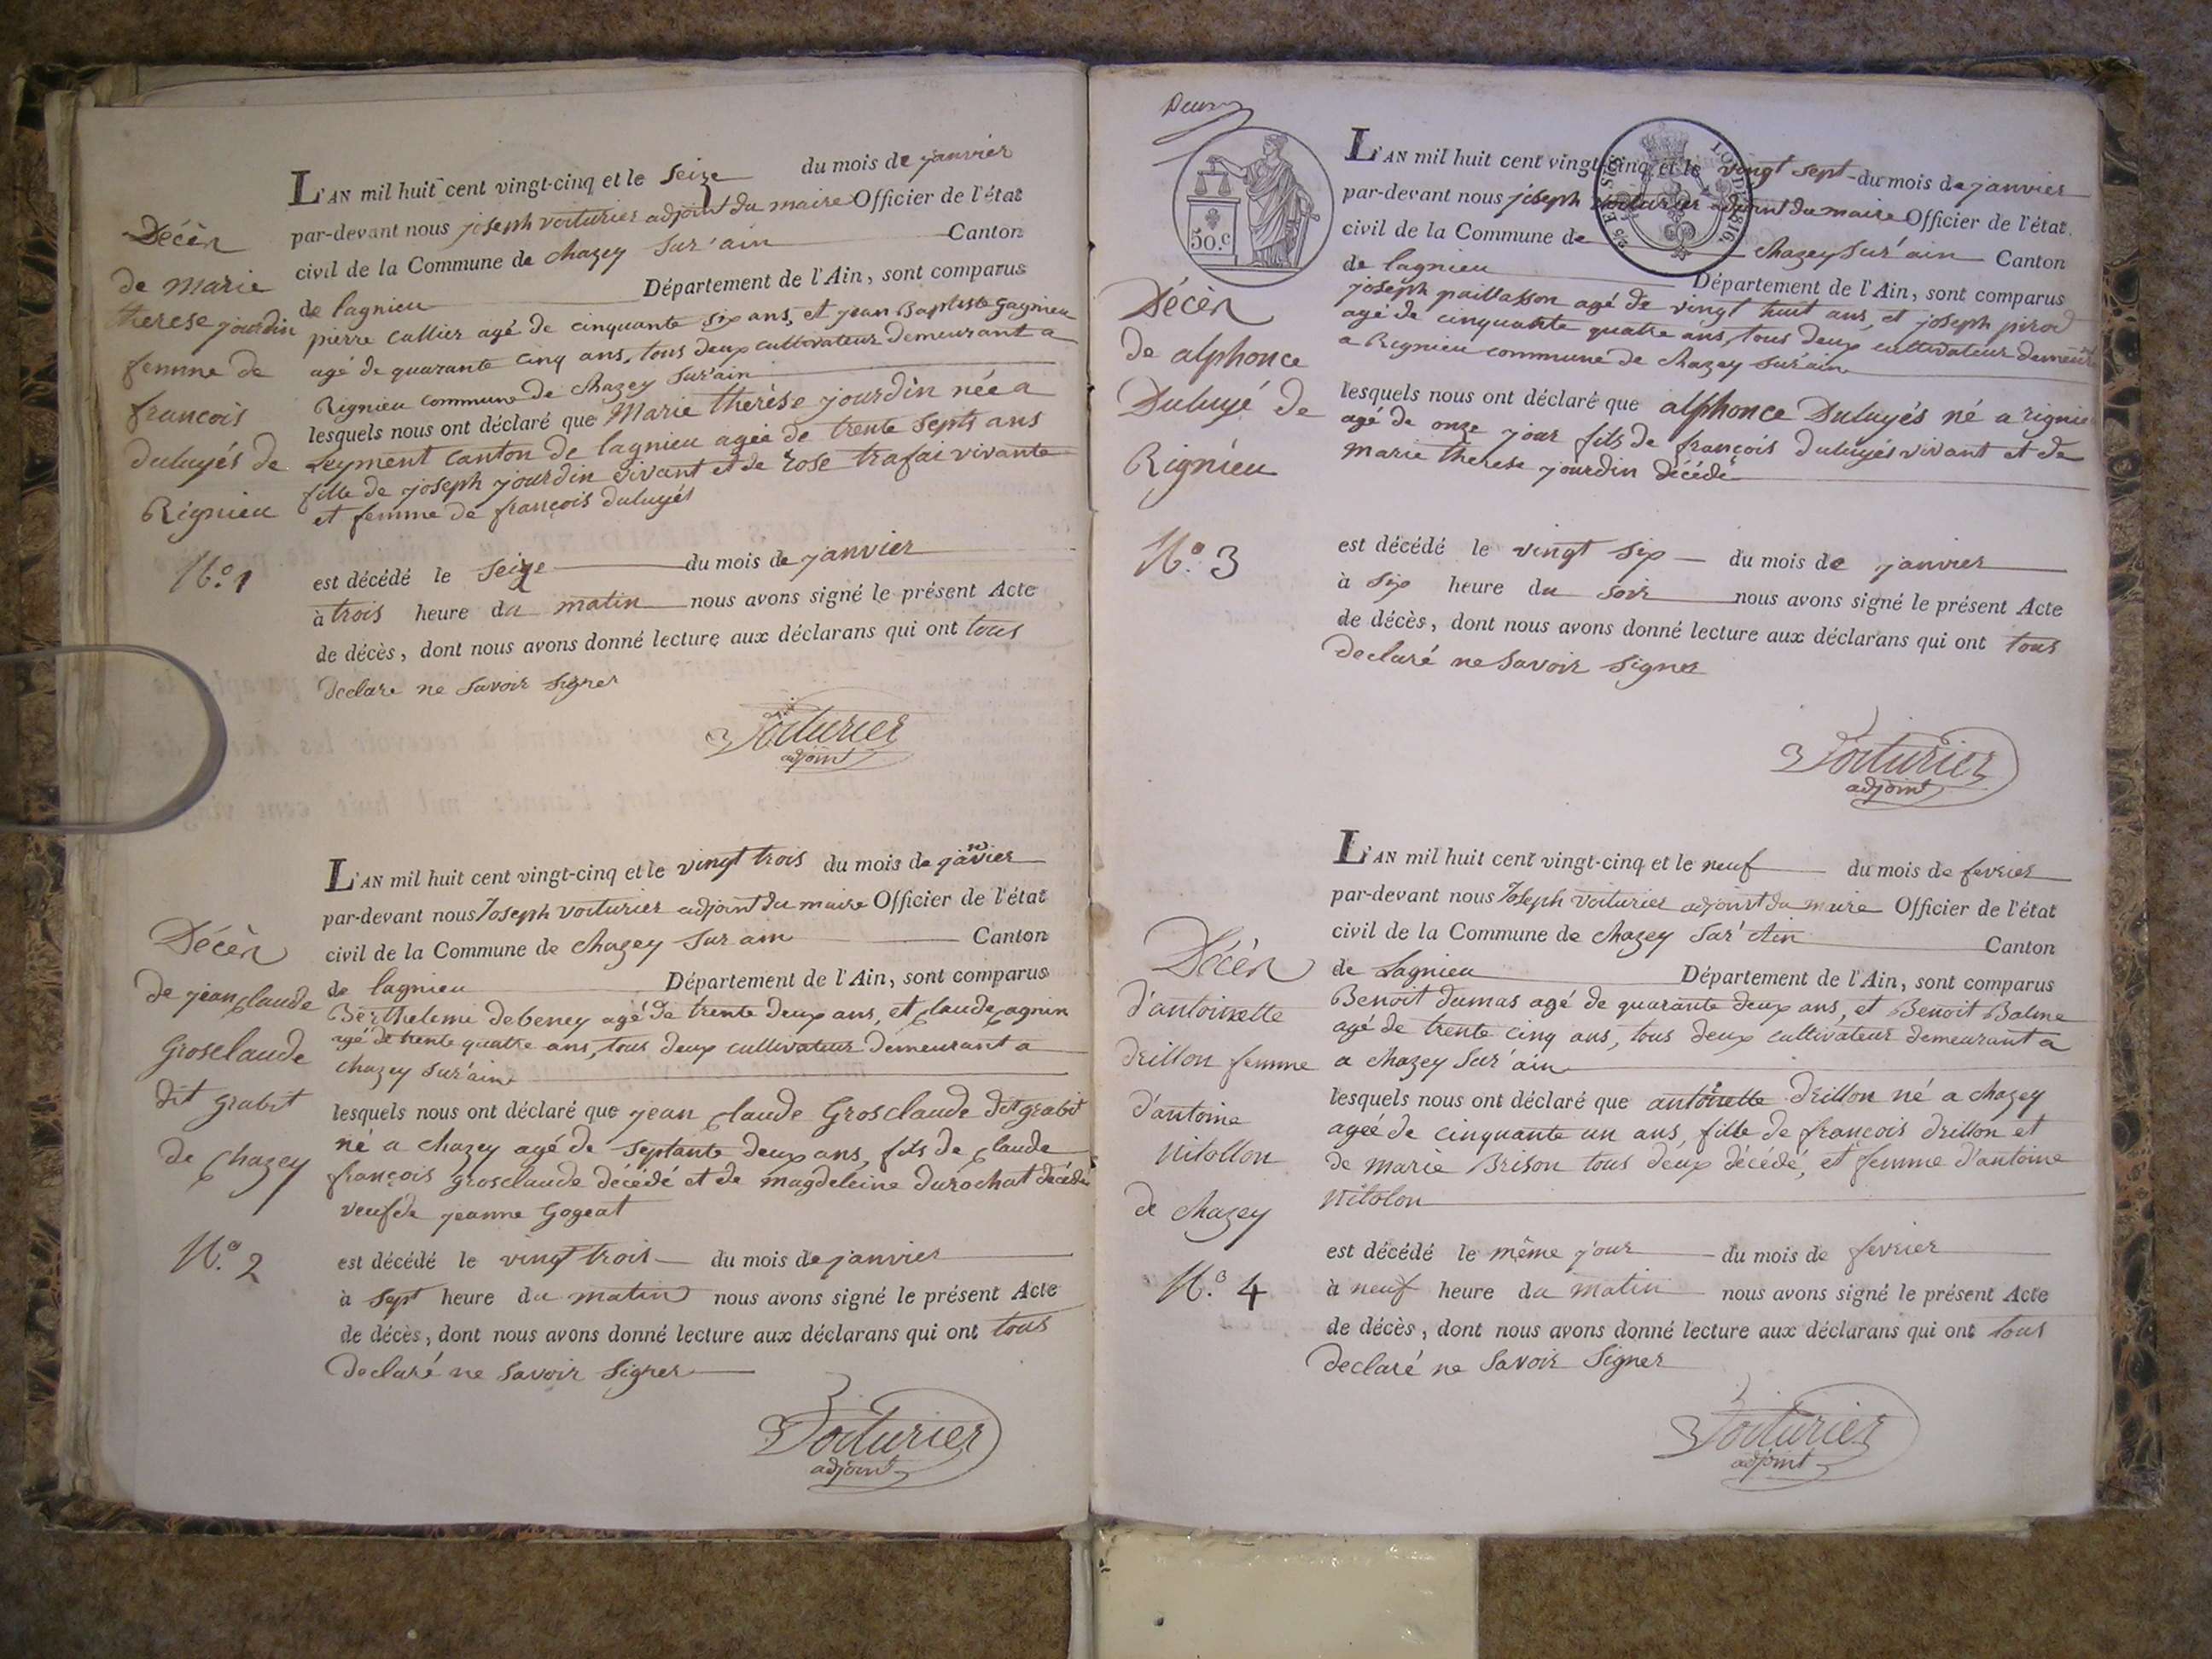 L'AN mil huit cent vingt-cinq et le seize du mois de janvier
par-devant nous joseph voiturier adjoint du maire Officier de l'état
civil de la Commune de chazey sur'ain Canton
de lagnieu Département de l'Ain, sont comparus
pierre cullier agé de cinquante six ans, et jean Baptiste gagnieu
agé de quarante cinq ans, tous deux cultivateur demeurant a
Rignieu commune de chazey sur'ain
lesquels nous ont déclaré que Marie thérèse jourdin née a
Leyment canton de lagnieu agée de trente septs ans
fille de joseph jourdin vivant et de rose trafai vivante
et femme de françois duluyés
est décédé le seize du mois de janvier
à trois heure du matin nous avons signé le présent Acte
de décès, dont nous avons donné lecture aux déclarans qui ont tous
declare ne savoir signer
Voiturier
adjoint
Décès
de marie
therese jourdin
femme de
francois
duluyés de
Rignieu
N.° 1
L'AN mil huit cent vingt-cinq et le vingt trois du mois de janvier
par-devant nous Joseph voiturier adjoint du maire Officier de l'état
civil de la Commune de chazey sur ain Canton
de lagnieu Département de l'Ain, sont comparus
Berthelemi debeney agé de trente deux ans, et claude cagnin
agé de trente quatre ans, tous deux cultivateur demeurant a
chazey sur'ain
lesquels nous ont déclaré que jean claude Grosclaude dit grabit
né a chazey agé de septante deux ans, fils de claude
françois grosclaude décédé et de magdeleine durochat décédé
veuf de jeanne Gogeat
est décédé le vingt trois du mois de janvier
à sept heure du matin nous avons signé le présent Acte
de décès, dont nous avons donné lecture aux déclarans qui ont tous
declaré ne savoir signer
Voiturier
adjoint
Décès
de jean claude
Grosclaude
dit grabit
de chazey
N.° 2
50.c
L'AN mil huit cent vingt-cinq et le vingt sept du mois de janvier
par-devant nous joseph voiturier adjoint du maire Officier de l'état
civil de la Commune de chazey sur'ain Canton
de lagnieu Département de l'Ain, sont comparus
joseph paillasson agé de vingt huit ans, et joseph pirod
agé de cinquante quatre ans, tous deux cultivateur demeurt
a Rignieu commune de chazey sur'ain
lesquels nous ont déclaré que alphonce Duluyés né a rignieu
agé de onze jour fils de françois duluyés vivant et de
marie therese jourdin décédé
est décédé le vingt six du mois de janvier
à six heure du soir nous avons signé le présent Acte
de décès, dont nous avons donné lecture aux déclarans qui ont tous
declaré ne savoir signer
Voiturier
adjoint
Décès
de alphonce
Duluyé de
Rignieu
N.° 3
L'AN mil huit cent vingt-cinq et le neuf du mois de fevrier
par-devant nous Joseph Voiturier adjoint du maire Officier de l'état
civil de la Commune de chazey sur' Ain Canton
de Lagnieu Département de l'Ain, sont comparus
Benoit dumas agé de quarante deux ans, et Benoit Balme
agé de trente cinq ans, tous deux cultivateur demeurant a
a chazey sur'ain
lesquels nous ont déclaré que antoinette drillon né a chazey
agée de cinquante un ans, fille de françois drillon et
de marie Brison tous deux décédé, et femme d'antoine
vitolon
est décédé le même jour du mois de fevrier
à neuf heure du matin nous avons signé le présent Acte
de décès, dont nous avons donné lecture aux déclarans qui ont tous
declaré ne savoir signer
Voiturier
adjoint
Décès
d'antoinette
drillon femme
d'antoine
vitollon
de chazey
N.° 4